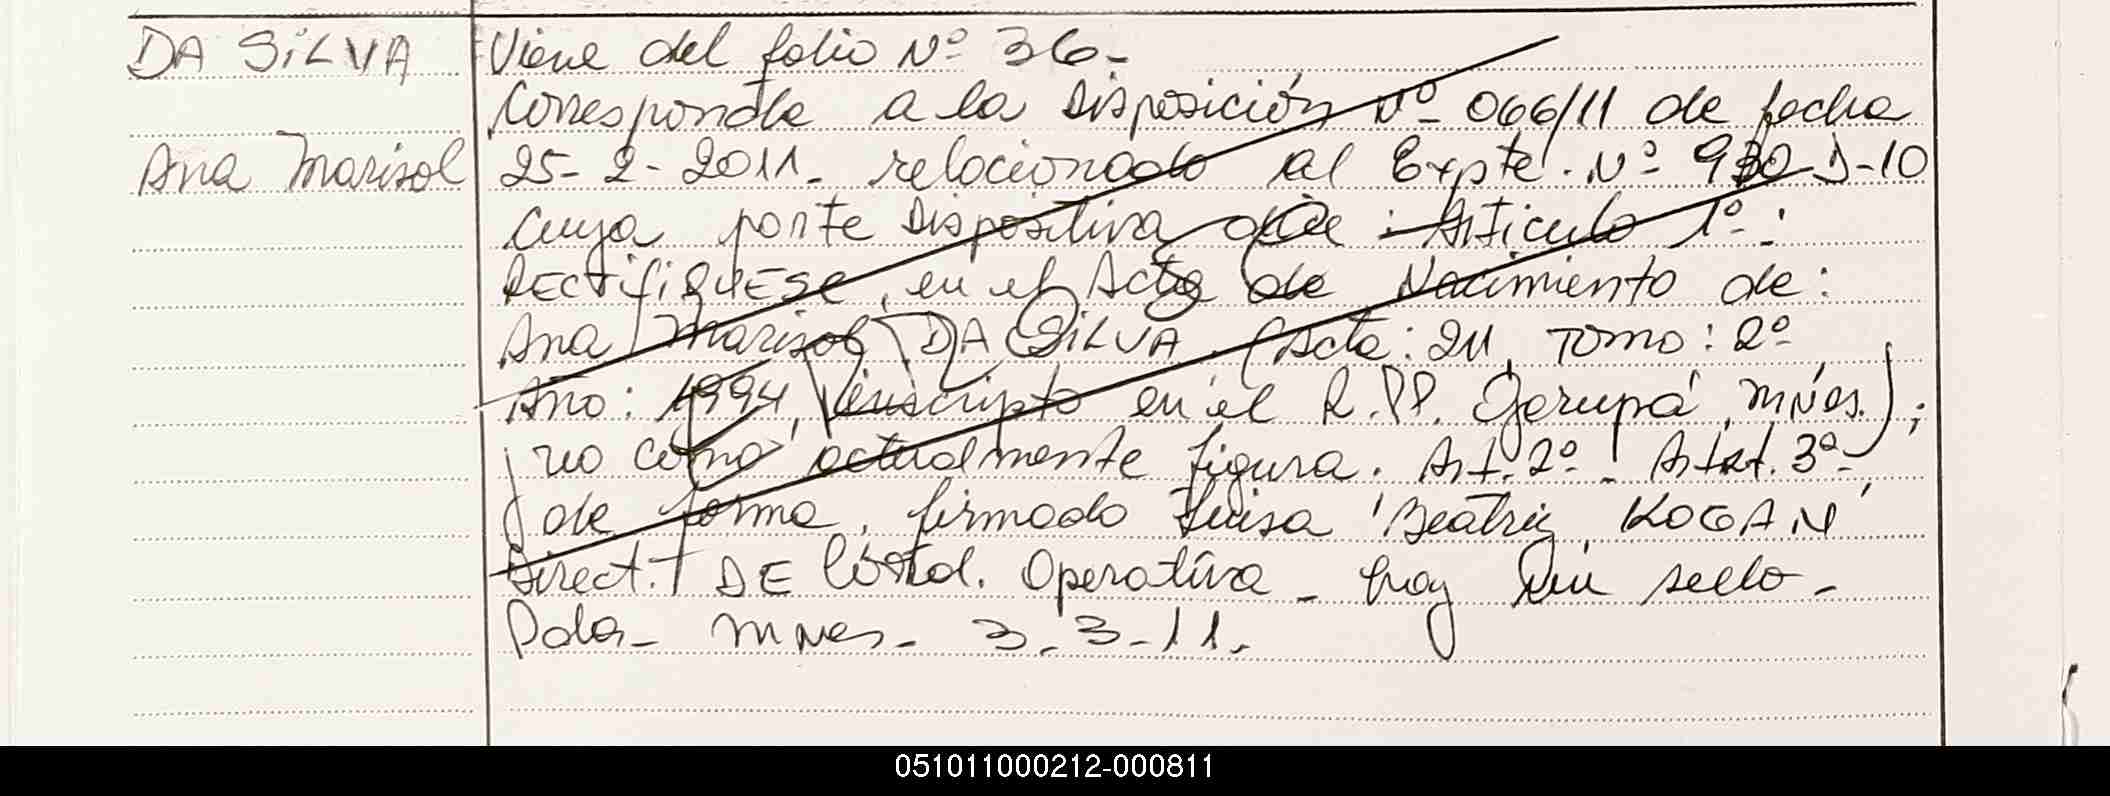 DA SiLVA
Ana Marisol
Viene del folio Nº 36-
Corresponde a la Disposición Nº 066/11 de fecha
25-2-2011- relacionado al Expte. Nº 930-D-10
cuya parte dispositiva dice: Articulo 1º:
RECTiFiQUESE, en el Acta de Nacimiento de:
Ana Marisol DA SiLVA. (Acta: 211, Tomo: 2º
Año: 1994, inscripto en el R.PP. Garupá, Mnes.);
no como actualmente figura. Art. 2º. Art. 3º-
de forma, firmado Luisa Beatriz KOGAN
Direct. DE Operativa - hay un sello-
Pdas- Mnes- 3-3-11.
051011000212-000811